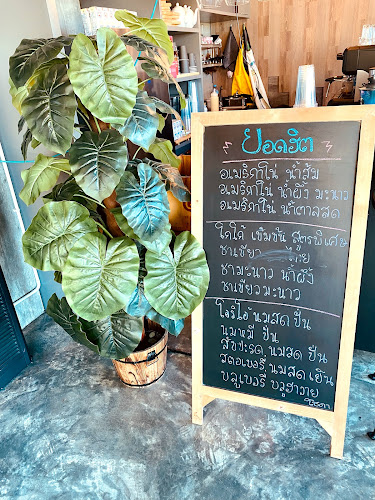 ยอดฮิต
อเมริกาโน่ น้ำส้ม
อเมริกาโน่ น้ำผึ้ง มะนาว
อเมริกาโน่ น้ำตาลสด
โกโก้ เข้มข้น สูตรพิเศษ
ชาเขียว ไทย
ชามะนาว น้ำผึ้ง
ชาเขียวมะนาว
โอริโอ้ นมสด ปั่น
นมหมี ปั่น
สับปะรด นมสด ปั่น
สตอเบอรี่ นมสด เย็น
บลูเบอรี่